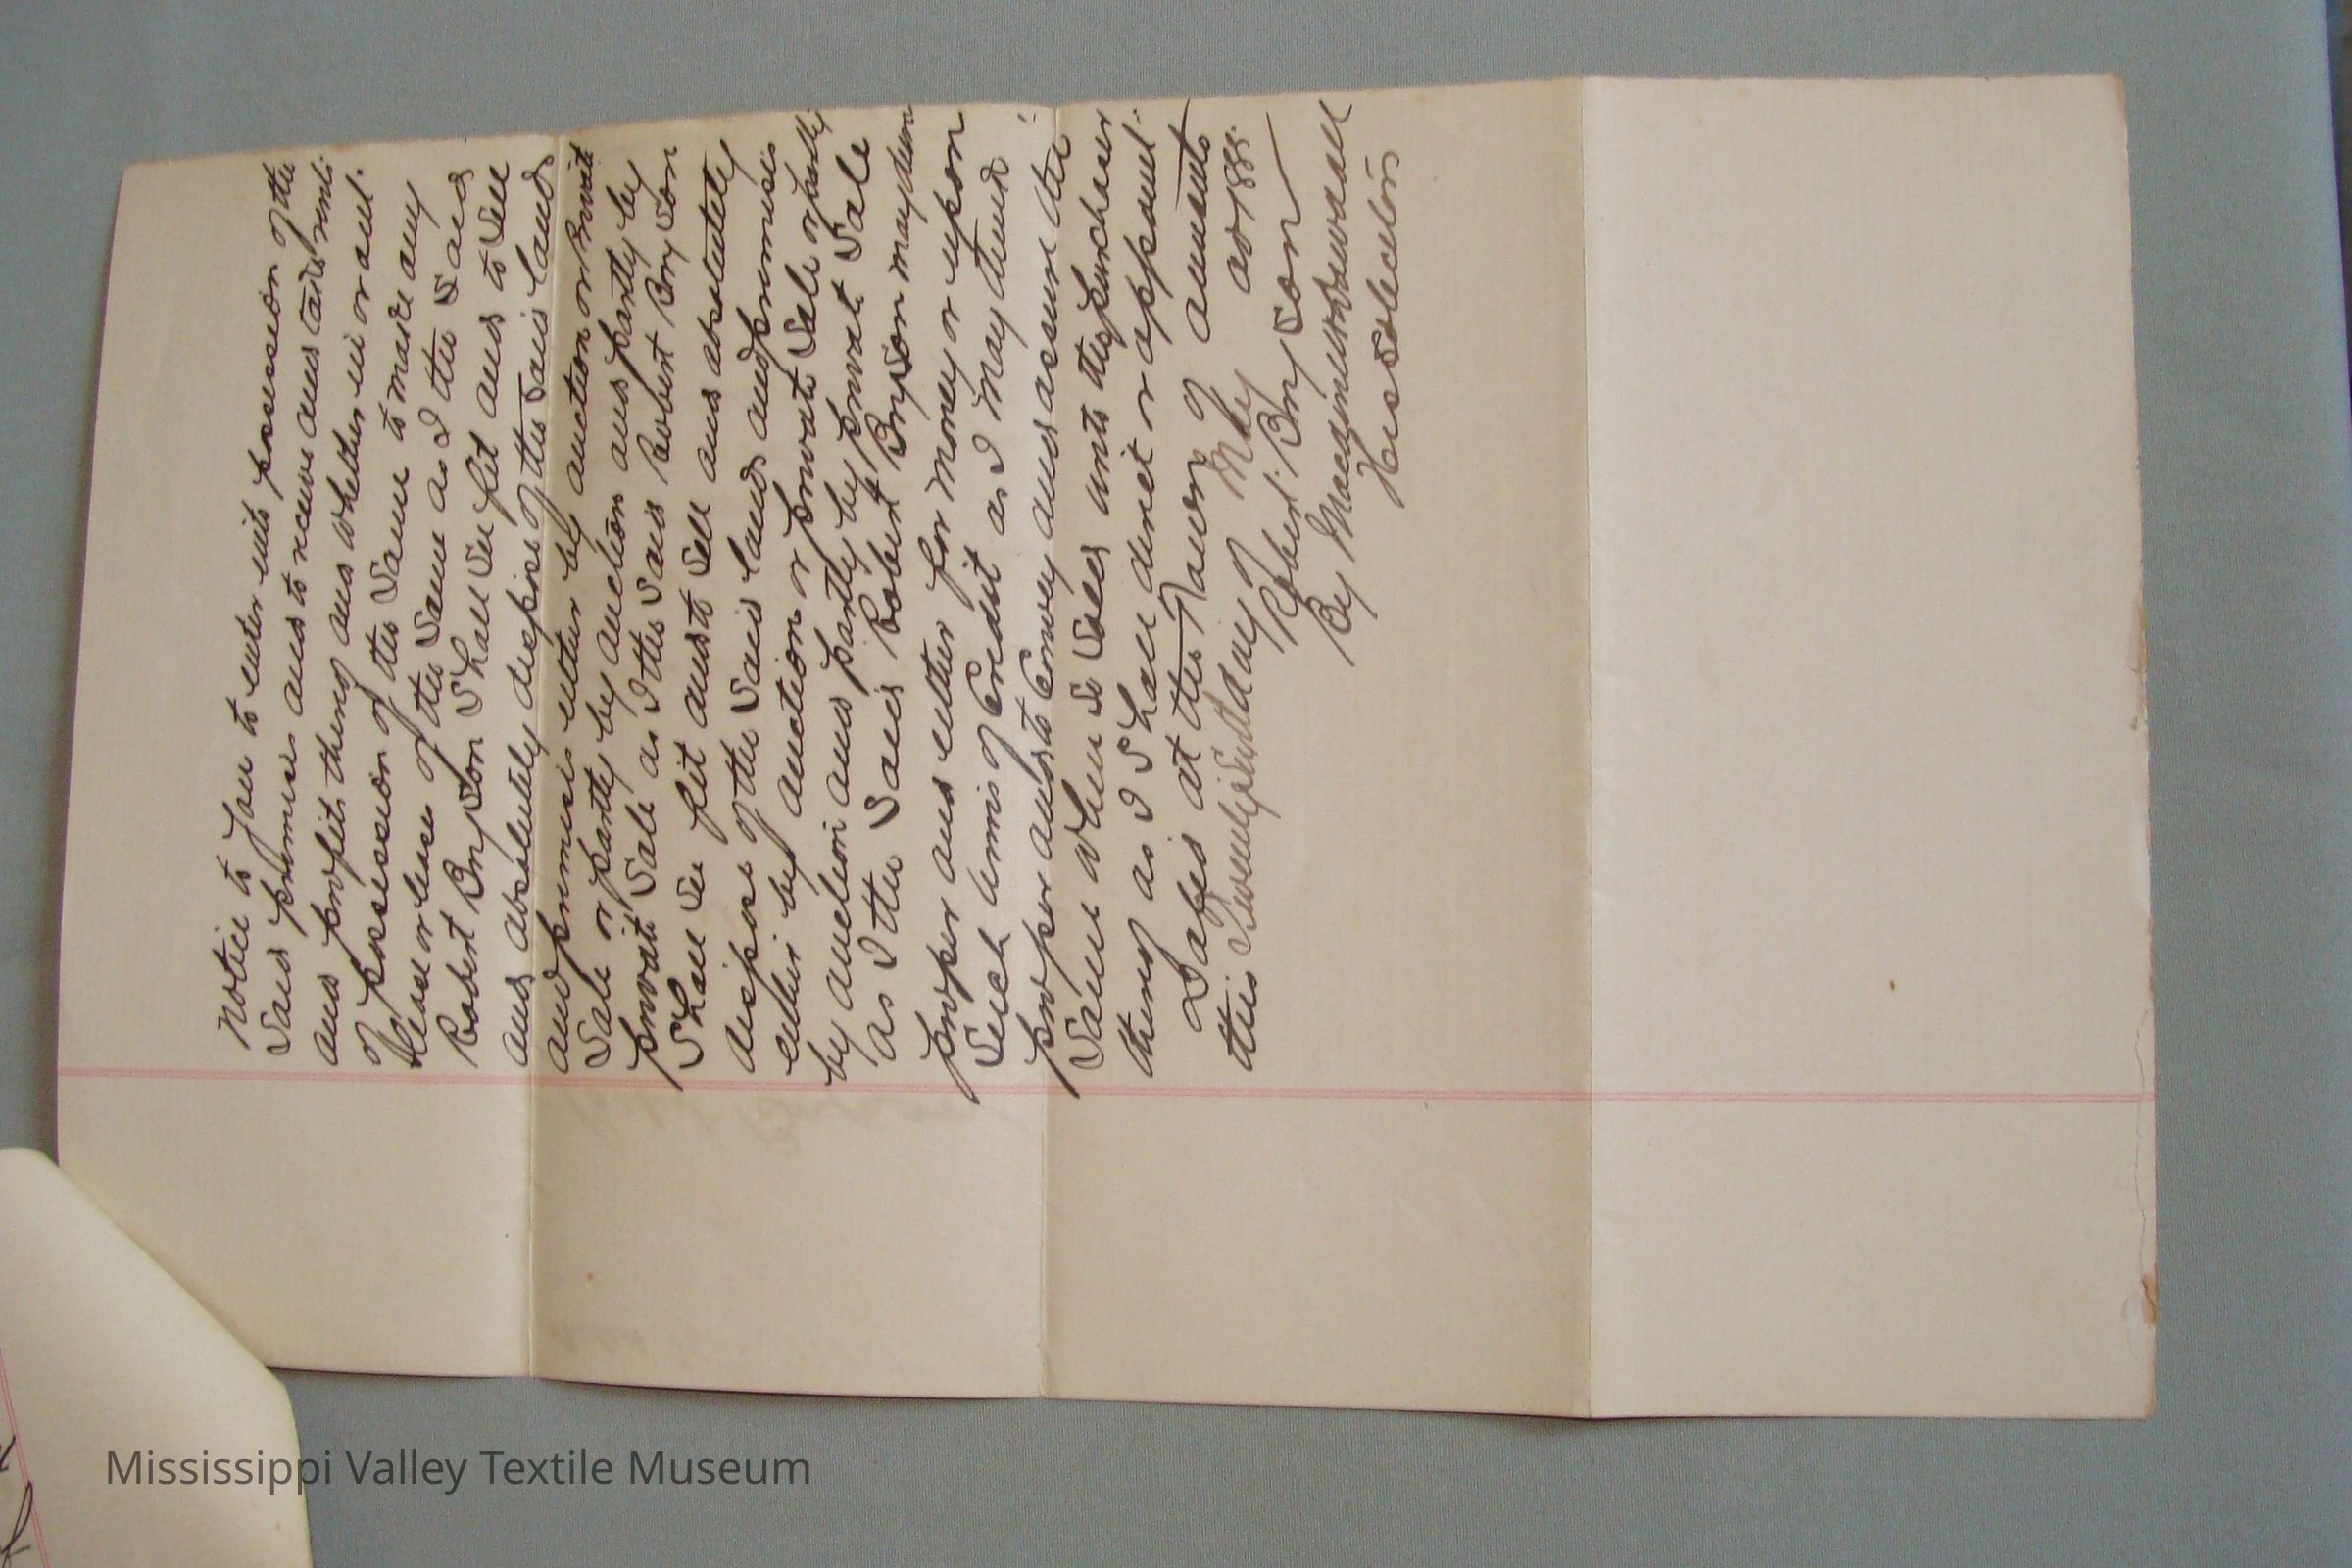 notice to you to enter into possession of the
Said premises and to receive and take rents
and profits thereof and whether in or out
of possession of the Same to make any
lease or leases of the Same as I the Said
Robert Bryson Shall See fit and to Sell
and absolutely dispose of the Said lands
and premises either by auction or private
Sale or partly by auction and partly by
private Sale as I the Said Robert Bryson
Shall See fit and to Sell and absolutely
dispose of the Said lands and premises
either by auction or private Sale or partly
by auction and partly by private Sale
as I the Said Robert Bryson may deem
proper and either for money or upon
Such terms of Credit as I may think
proper and to Convey and assure the
Same when So Sold unto the purchaser
thereof as I Shall direct or appoint.
Dated at the Town of Almonte
this Twenty Sixth day of May AD 188
Robert Bryson
By
His Solicitors
Mississippi Valley Textile Museum